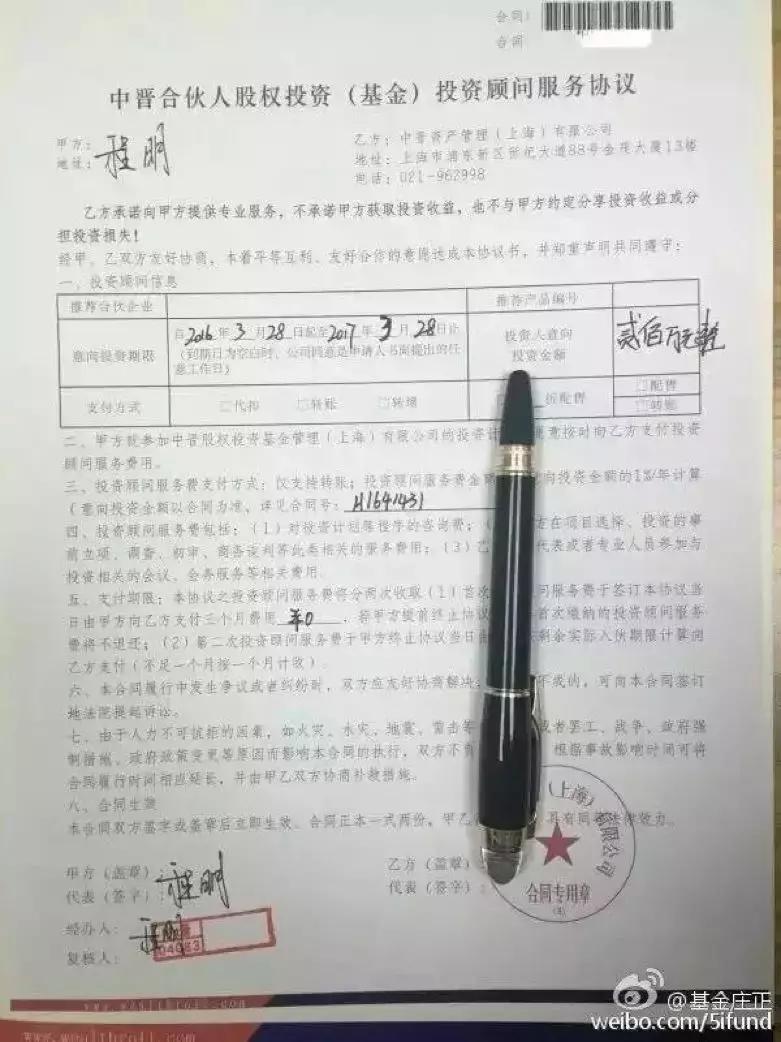 合同
合同
中晋合伙人股权投资（基金）投资顾问服务协议
甲方：程明
地址：
乙方：中晋资产管理（上海）有限公司
地址：上海市浦东新区世纪大道88号金茂大厦13楼
电话：021-962998
乙方承诺向甲方提供专业服务，不承诺甲方获取投资收益，也不与甲方约定分享投资收益或分
担投资损失！
经甲、乙双方友好协商，本着平等互利、友好合作的意愿达成本协议书，并郑重声明共同遵守：
一、投资顾问信息
推荐合伙企业 推荐产品编号
意向投资期限 自2016年3月28日起至2017年3月28日止
（到期日为空白时，公司同意是申请人书面提出的任
意工作日）
投资人意向
投资金额
贰佰万元整
支付方式 □代扣 □转账 □转增 拆配售 □配售
□转账
二、甲方就参加中晋股权投资基金管理（上海）有限公司的投资计 愿意按时向乙方支付投资
顾问服务费用。
三、投资顾问服务费支付方式：仅支持转账；投资顾问服务费金 意向投资金额的1%/年计算
（意向投资金额以合同为准，详见合同号：H1641431
四、投资顾问服务费包括：（1）对投资计划等程序的咨询费；（ 方在项目选择、投资的事
前立项、调查、初审、商务谈判等此类相关的服务费用；（3）乙 代表或者专业人员参加与
投资相关的会议、会务服务等相关费用。
五、支付期限：本协议之投资顾问服务费将分两次收取（1）首次 问服务费于签订本协议当
日由甲方向乙方支付三个月费用 ¥0 ，若甲方提前终止协议 首次缴纳的投资顾问服务
费将不退还；（2）第二次投资顾问服务费于甲方终止协议当日由 剩余实际入伙期限计算向
乙方支付（不足一个月按一个月计收）。
六、本合同履行中发生争议或者纠纷时，双方应友好协商解决 不成的，可向本合同签订
地法院提起诉讼。
七、由于人力不可抗拒的因素，如火灾、水灾、地震、雷击等 或者罢工、战争、政府强
制措施、政府政策变更等原因而影响本合同的执行，双方不负 根据事故影响时间可将
合同履行时间相应延长，并由甲乙双方协商补救措施。
八、合同生效
本合同双方签字或盖章后立即生效。合同正本一式两份，甲乙 具有同等法律效力。
甲方（盖章） 乙方（盖章）
代表（签字）：程明 代表（签字）：
经办人：程明
复核人：
04083
（上海）有限公司
合同专用章
www.wealthroll.com
www.wealthroll.com
@基金庄正
weibo.com/5ifund